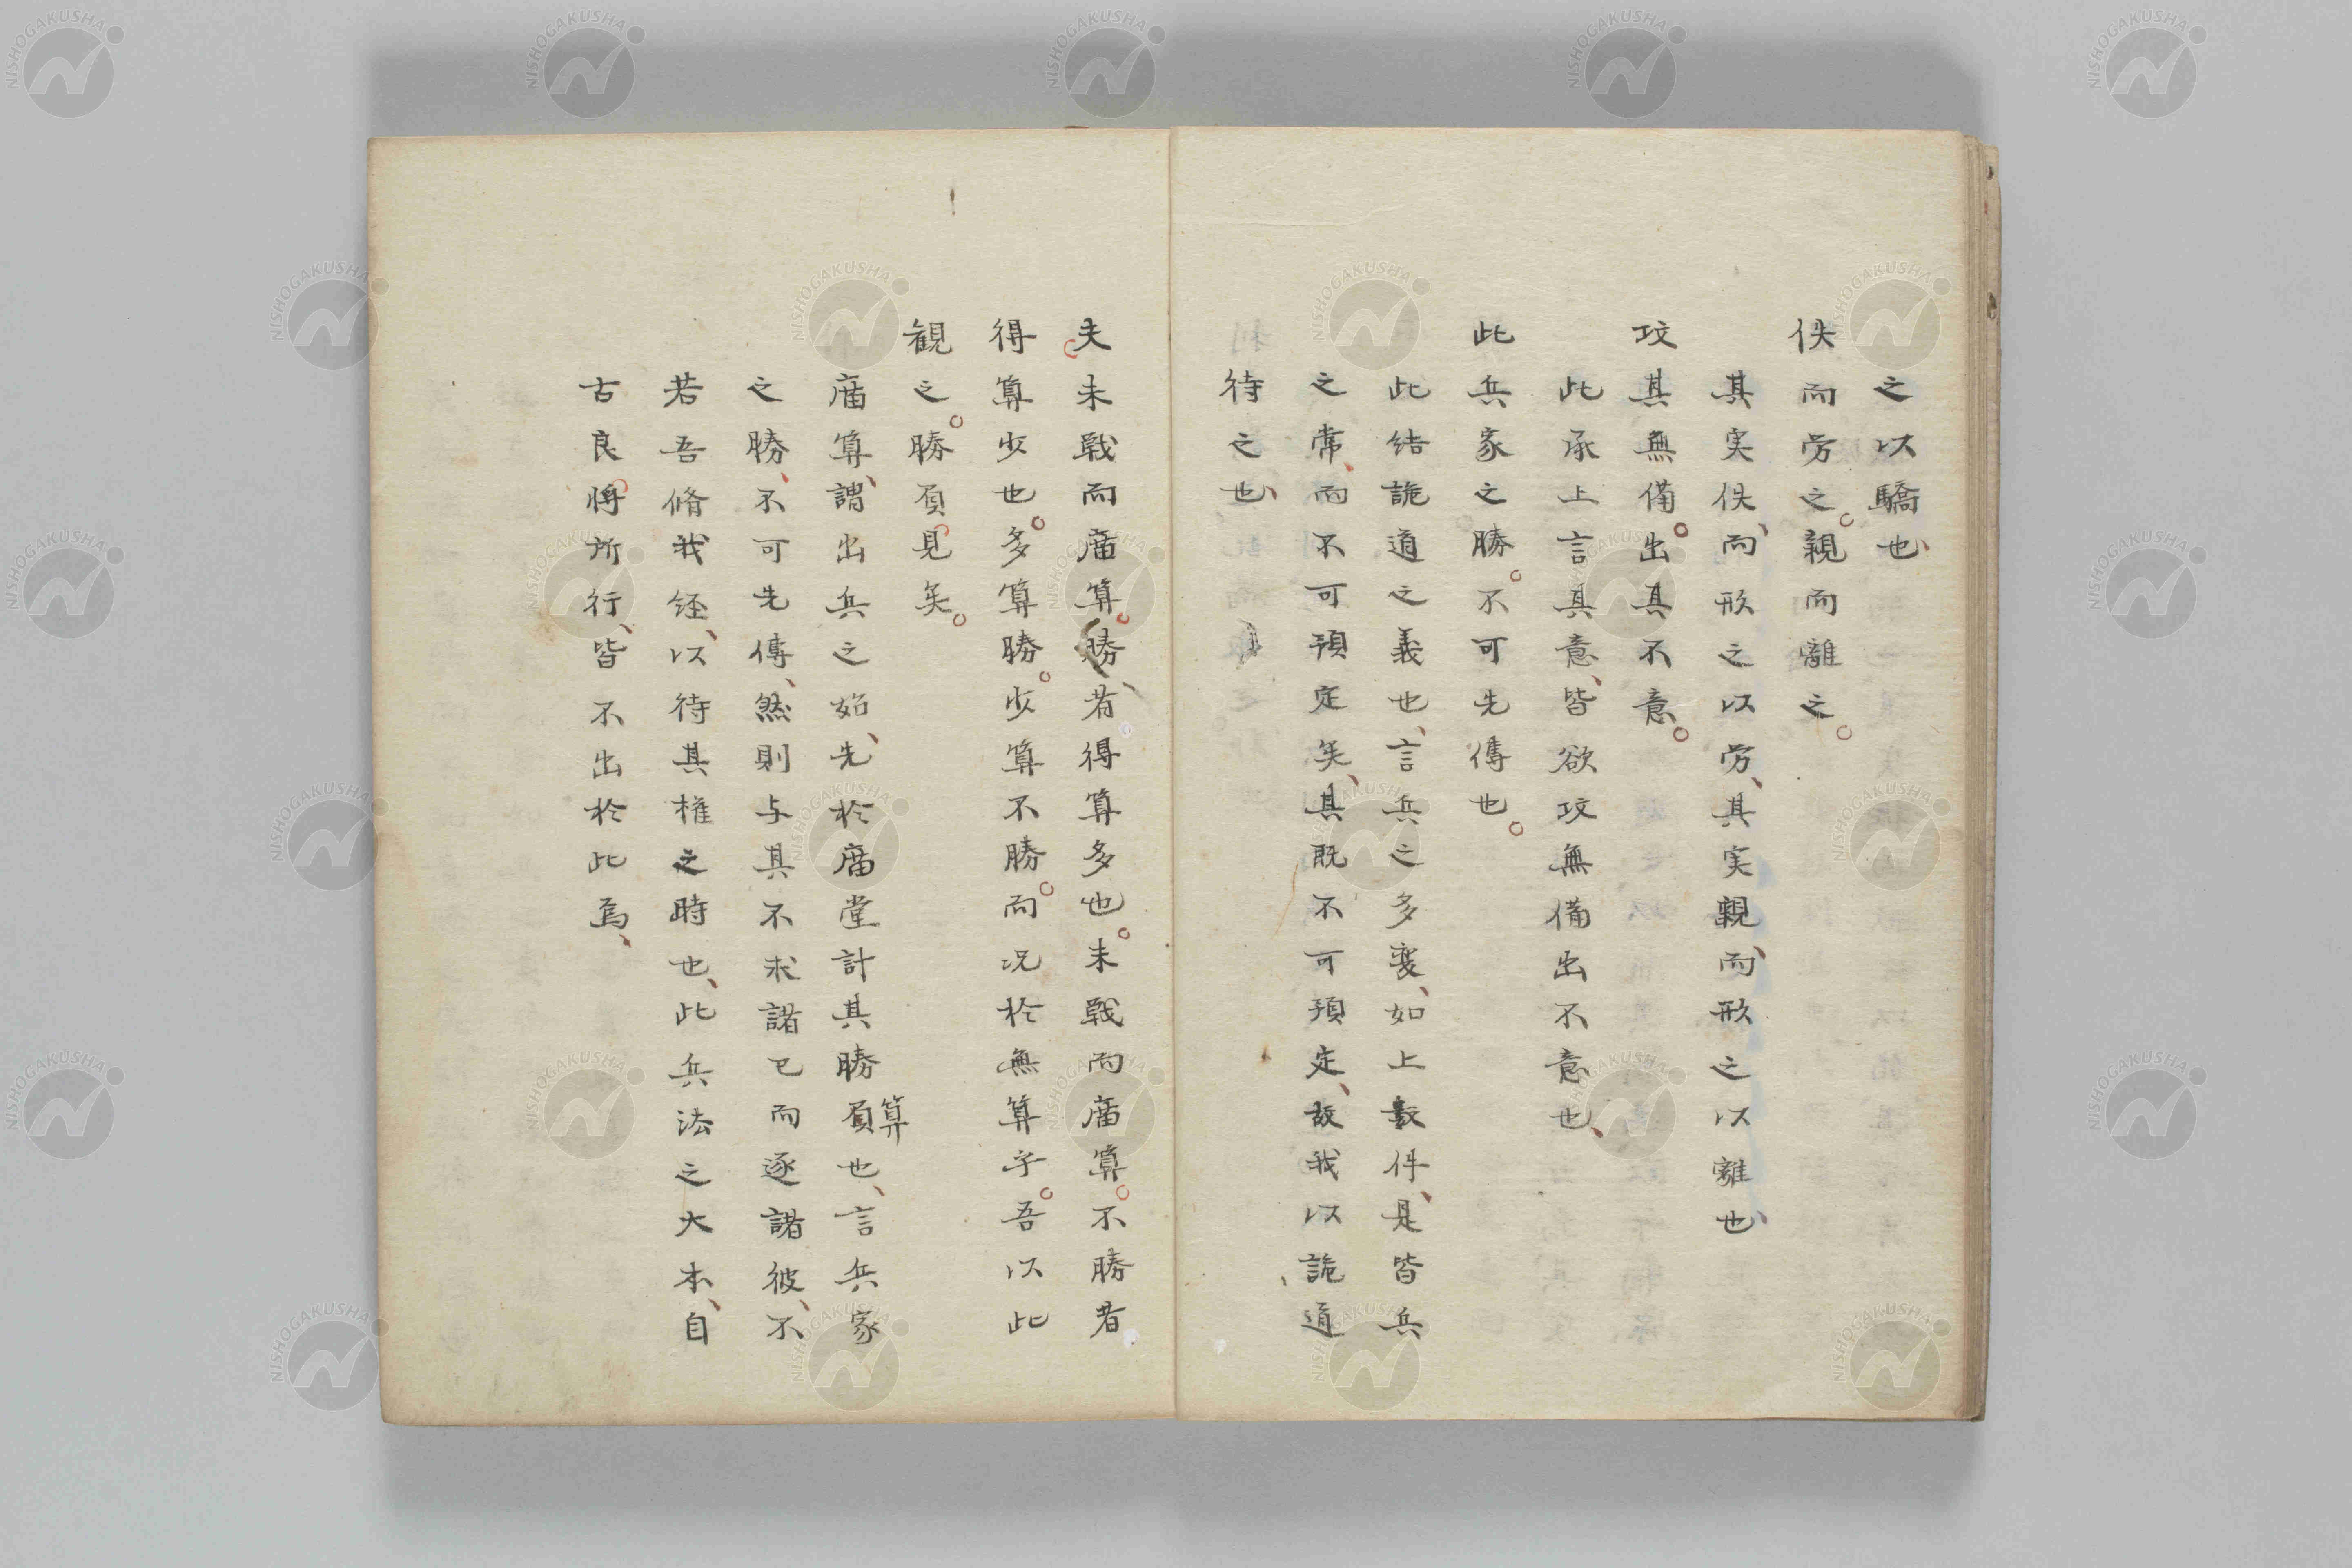 之以驕也、
佚而労之。親而離之。
其実佚、而形之以労、其実親、而形之以離也、
攻其無備。出其不意。
此承上言其意、皆欲攻無備出不意也、
此兵家之勝。不可先傳也。
此結詭道之義也、言兵之多変、如上数件、是皆兵
之常、而不可預定矣、其既不可預定、故我以詭道
待之也、
夫未戦而廟算。勝者得算多也。未戦而廟算。不勝者
得算少也。多算勝。少算不勝。而况於無算乎。吾以此
観之。勝負見矣。
廟算、謂出兵之始、先於廟堂計其勝負算也、言兵家
之勝、不可先傳、然則与其不求諸己而逐諸彼、不
若吾脩我経、以待其権之時也、此兵法之大本、自
古良将所行、皆不出於此焉、
NISHOGAKUSHA